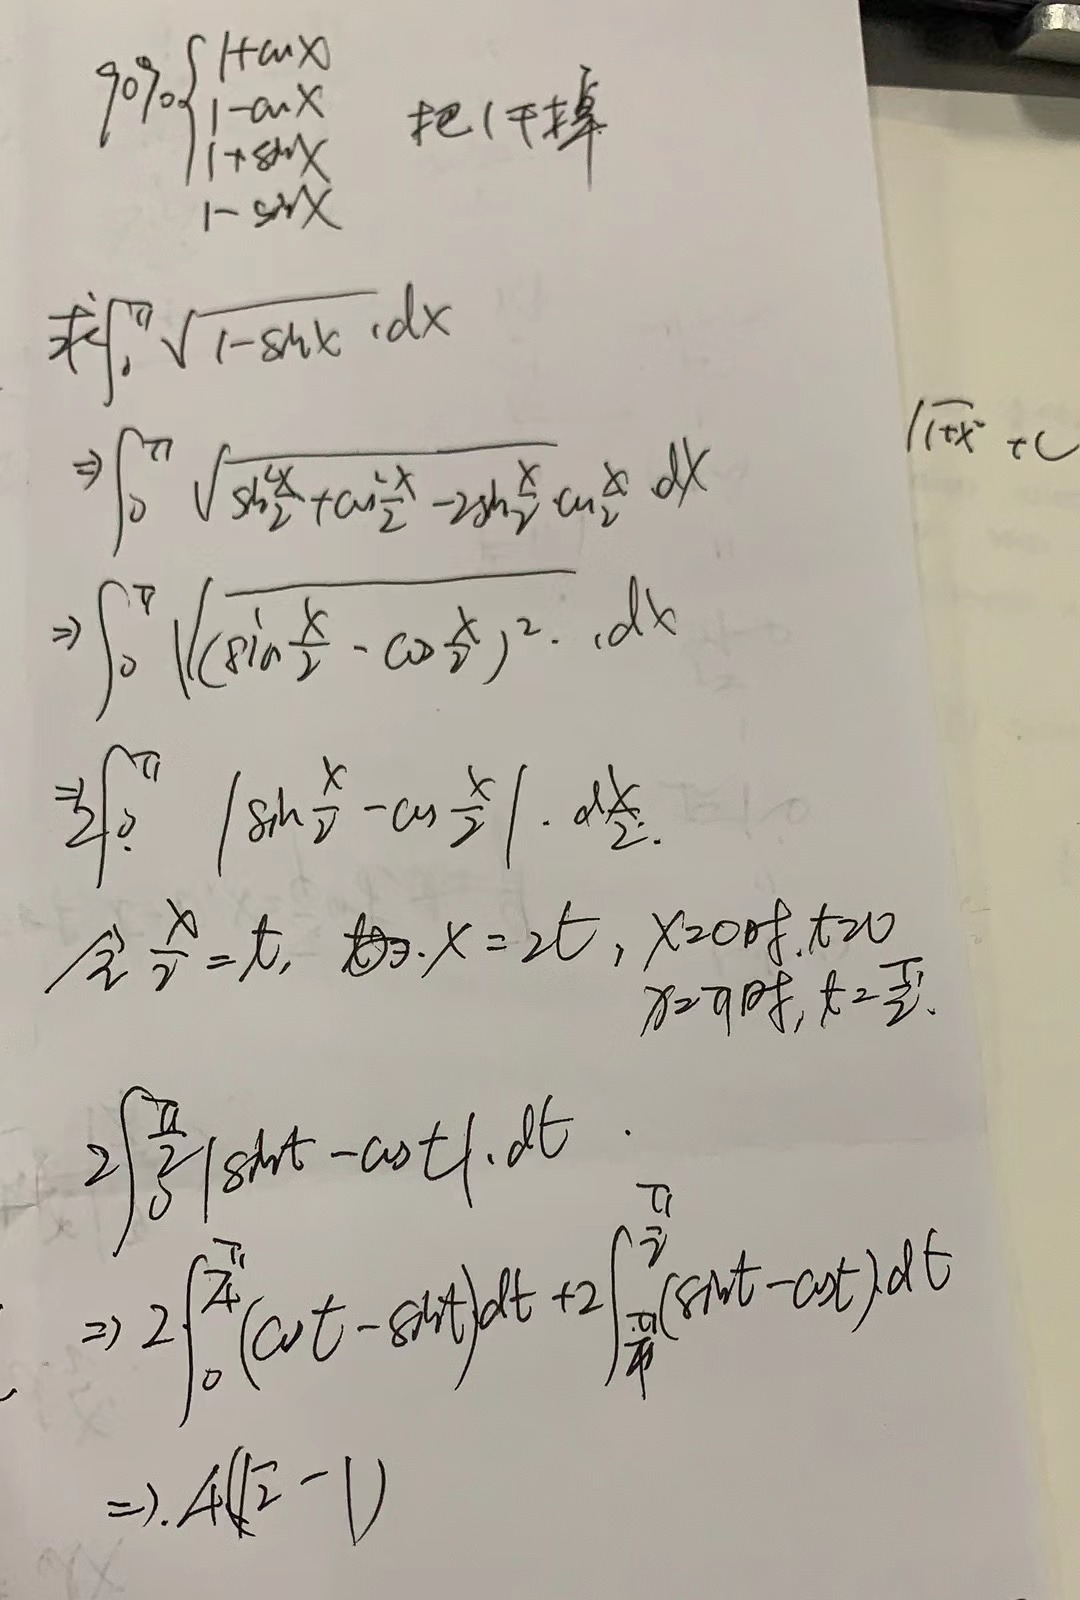 90% { 1+cosx
1-cosx
1+sinx
1-sinx
把1干掉
求∫₀^π √(1-sinx) · dx
⇒ ∫₀^π √(sin²x/2 + cos²x/2 - 2sin x/2 · cos x/2) · dx
⇒ ∫₀^π √((sin x/2 - cos x/2)²) · dx
⇒ 2∫₀^π |sin x/2 - cos x/2| · d x/2.
令 x/2 = t, x = 2t, x=0时, t=0
x=π时, t=π/2.
2∫₀^(π/2) |sint - cost| · dt
⇒ 2∫₀^(π/4) (cost - sint)dt + 2∫_(π/4)^(π/2) (sint - cost)·dt
⇒ 4(√2 - 1)
√(1+x²) + C